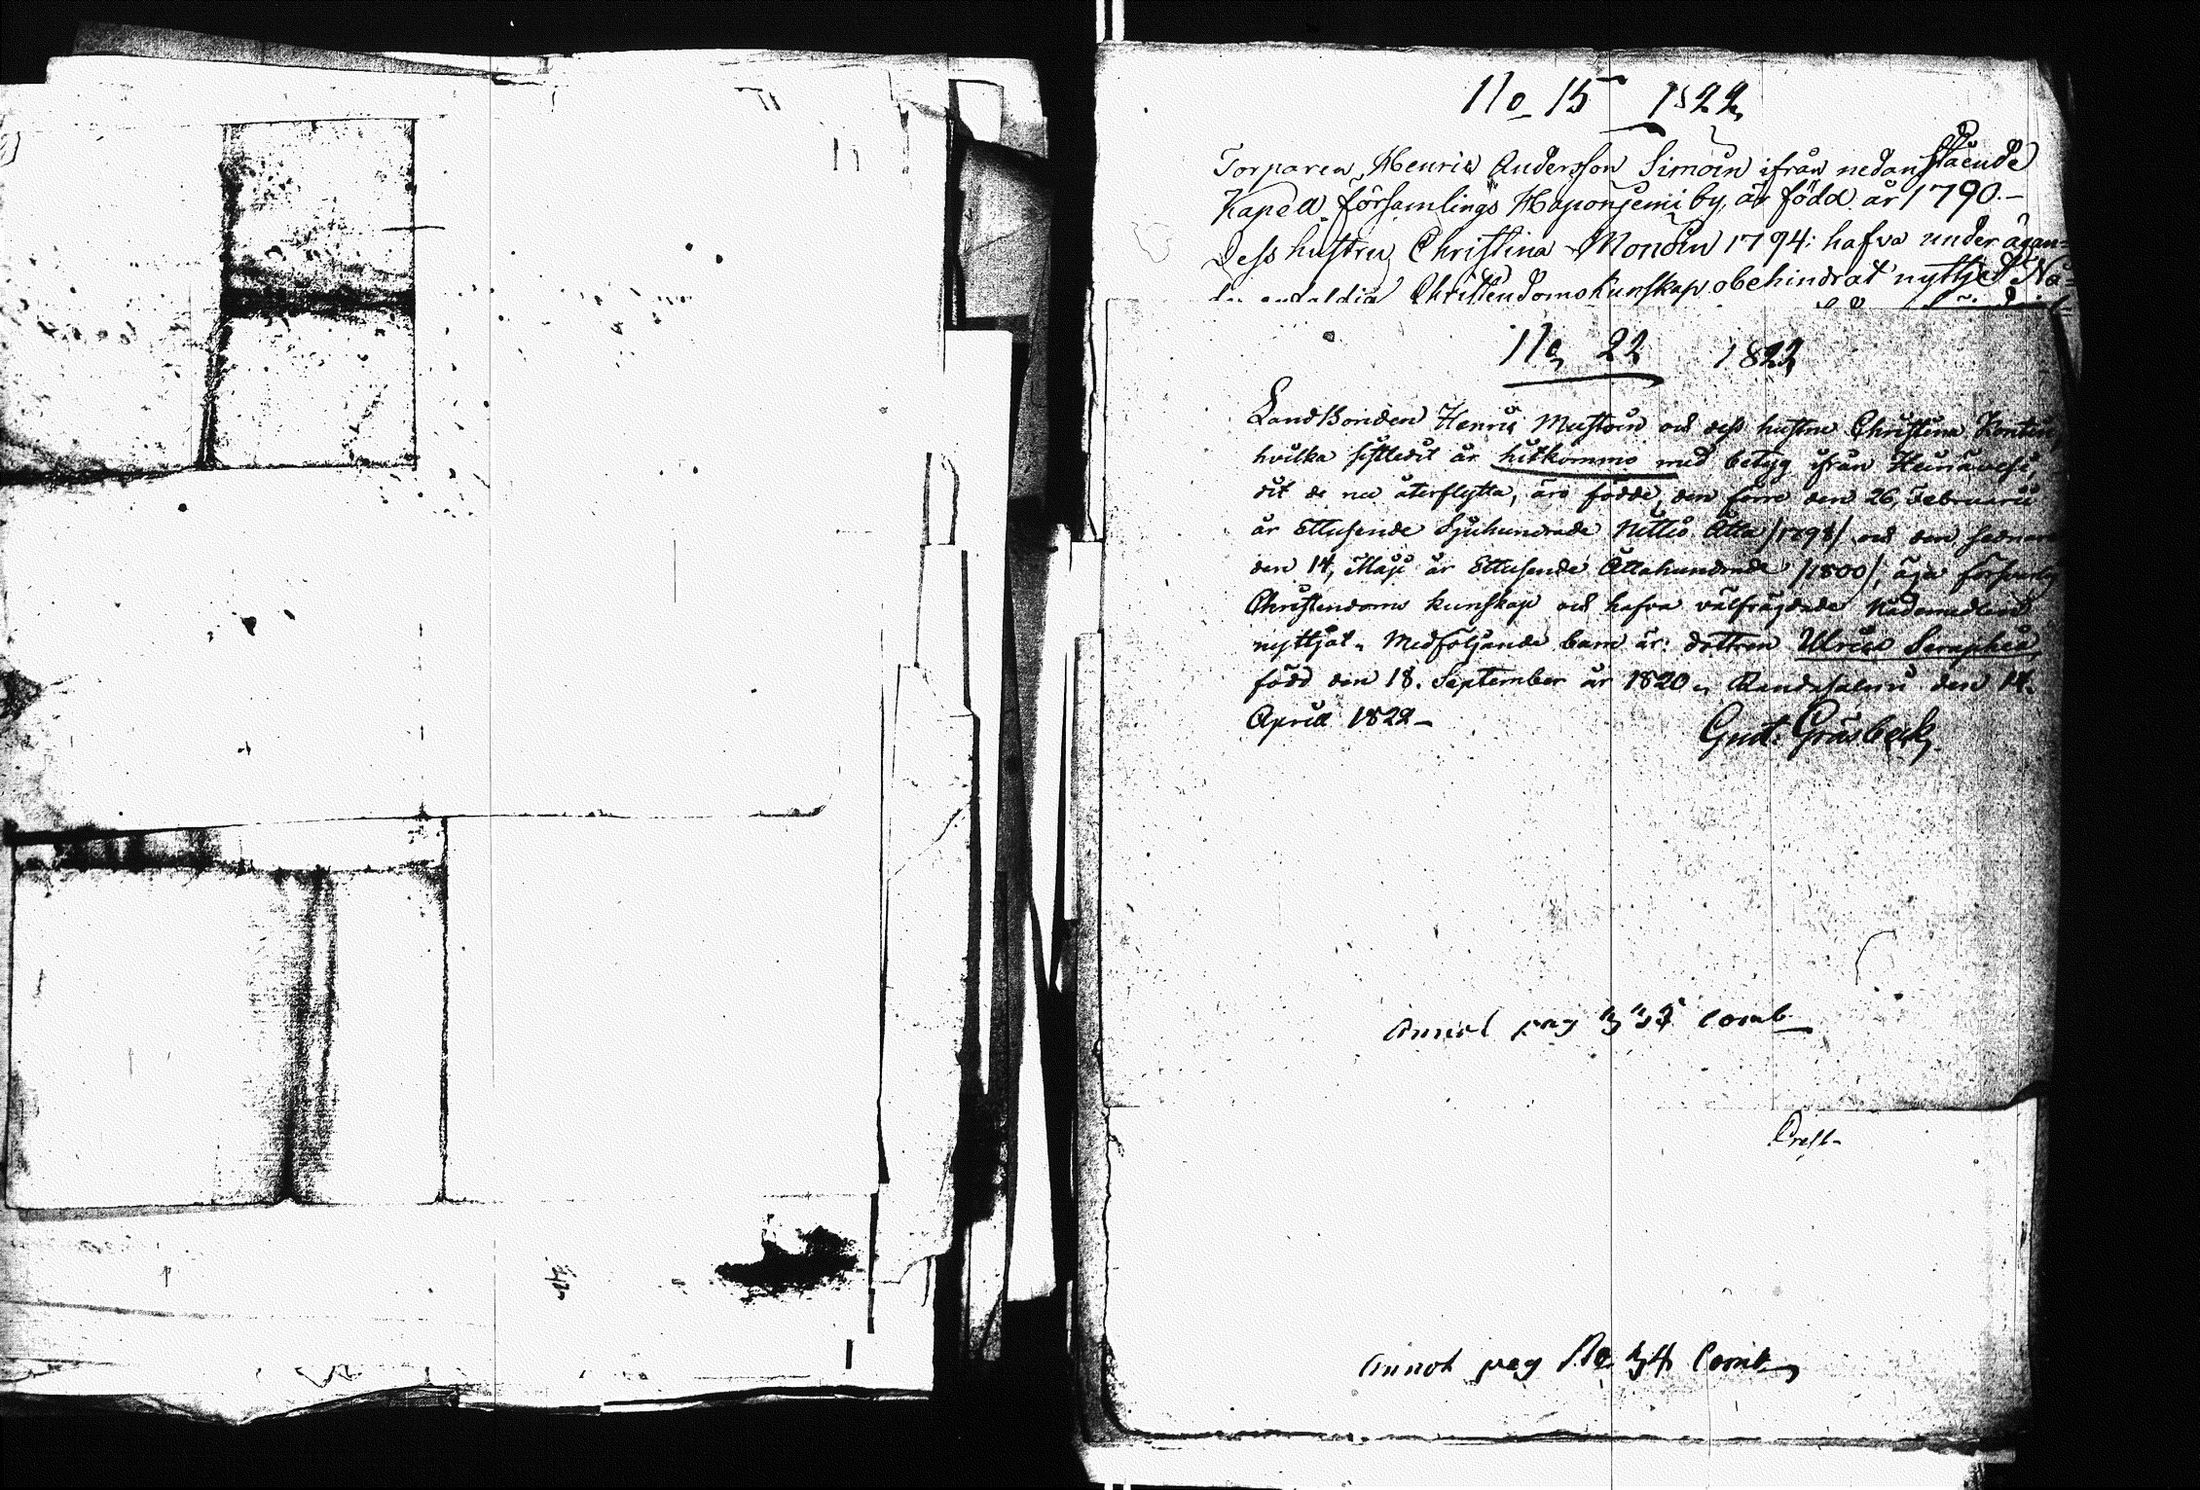 No 15 1822
Torparen Henric Andersson Simoin ifrån nedanstående
Kapell församlings Haponjemi by, är född år 1790.-
Dess hustru Christina Monoin 1794: hafva under ägan=
Christendomskunskap obehindrat nyttjat Nå=
No 22 1822
Landbonden Henric Mustoin och dess hustru Christina Kontin,
hvilka sistledit år hitkommo med betyg ifrån Heinävesi,
dit de nu återflytta, äro födde, den förre den 26, Februarii
år Ettusende Sjuhundrade Nittio Åtta /1798/ och den sednare
den 14, Maji år Ettusende Åttahundrade /1800/, äga
Christendoms kunskap och hafva välfrägdade Nådemedlen
nyttjat. Medföljande barn är: dottren Ulrica Seraphia,
född den 18. September år 1820. Randasalmi den 14.
Aprill 1822-
Gust. Gråsbeck
Annot pag comb
Prest-
Annot pag No 34 comb